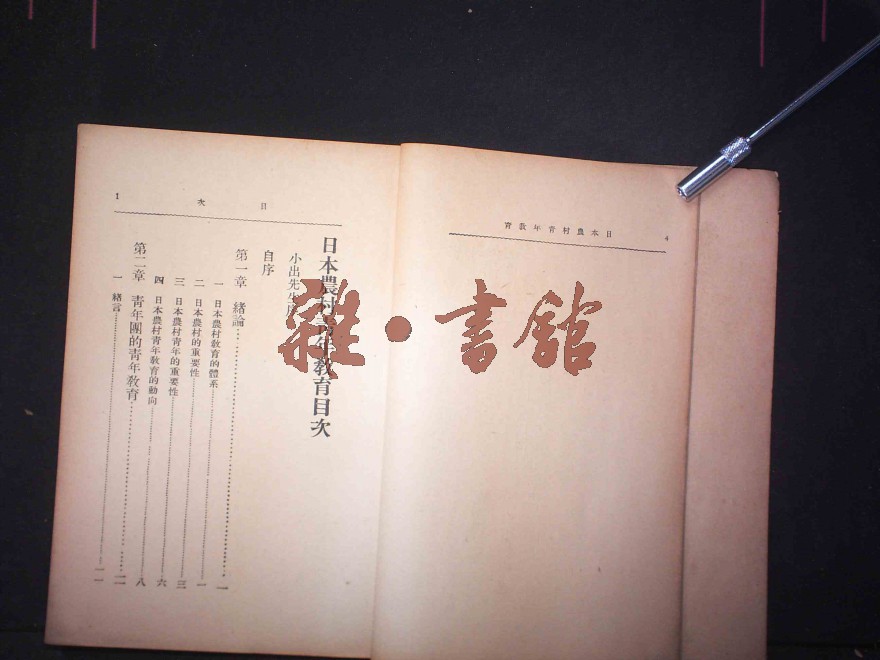 日本農村青年教育
4
目次
1
日本農村青年教育目次
小出先生序
自序
第一章 緒論……一
一 日本農村教育的體系……一
二 日本農村的重要性……一
三 日本農村青年的重要性……三
四 日本農村青年教育的動向……六
第二章 青年團的青年教育……
一 緒言……
雜·書館